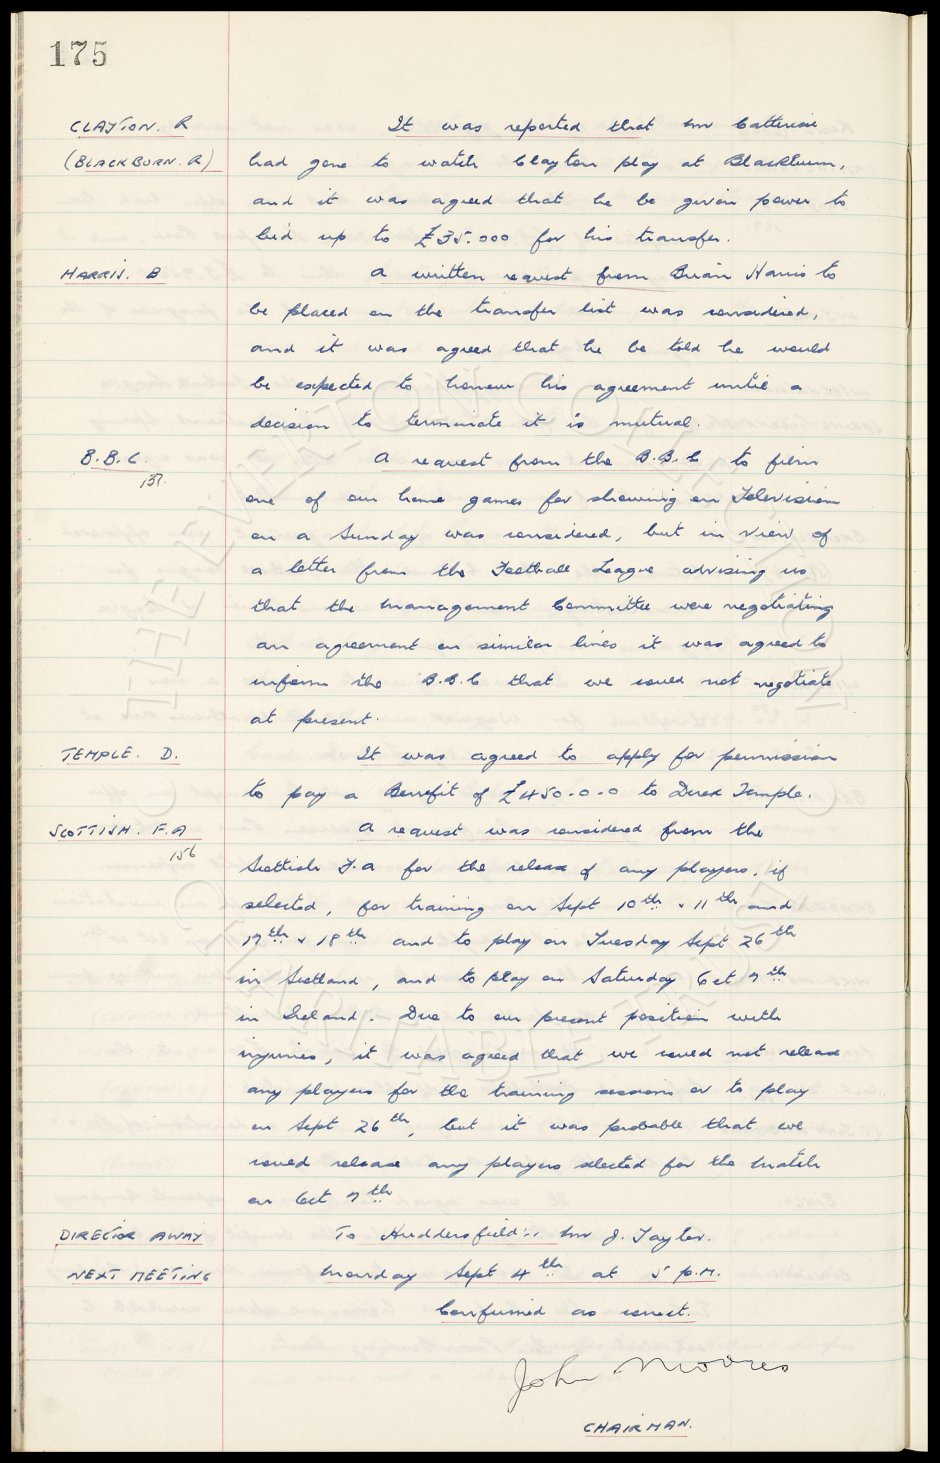 175
CLAYTON. R It was reported that Mr Catterick
(BLACKBURN. R) had gone to watch Clayton play at Blackburn,
and it was agreed that he be given power to
bid up to £35.000 for his transfer.
HARRIS. B A written request from Brian Harris to
be placed on the transfer list was considered,
and it was agreed that he be told he would
be expected to honour his agreement until a
decision to terminate it is mutual.
B.B.C. A request from the B.B.C to film
137. one of our home games for showing on Television
on a Sunday was considered, but in view of
a letter from the Football League advising us
that the Management Committee were negotiating
an agreement on similar lines it was agreed to
inform the B.B.C that we could not negotiate
at present.
TEMPLE. D. It was agreed to apply for permission
to pay a Benefit of £450-0-0 to Derek Temple.
SCOTTISH. F.A A request was considered from the
156 Scottish F.A for the release of any players, if
selected, for training on Sept 10th & 11th and
17th & 18th and to play on Tuesday Sept 26th
in Scotland, and to play on Saturday Oct 7th
in Ireland. Due to our present position with
injuries, it was agreed that we could not release
any players for the training sessions or to play
on Sept 26th, but it was probable that we
could release any players selected for the match
on Oct 7th
DIRECTOR AWAY To Huddersfield:- Mr J. Taylor.
NEXT MEETING Monday Sept 4th at 5 p.m.
Confirmed as correct.
John Moores
CHAIRMAN.
THE EVERTON COLLECTION
CHARITABLE TRUST